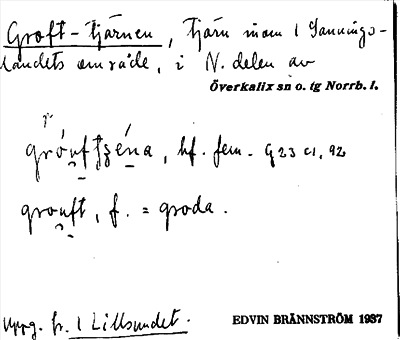 Groft-tjärnen, tjärn inom 1 Sannings-
landets område, i N. delen av
Överkalix sn o. tg Norrb. l.
gróuftʒéna, bf. fem. G 23 c1, 92
grouft, f. = groda.
Uppg. fr. 1 Lillsundet.
EDVIN BRÄNNSTRÖM 1937